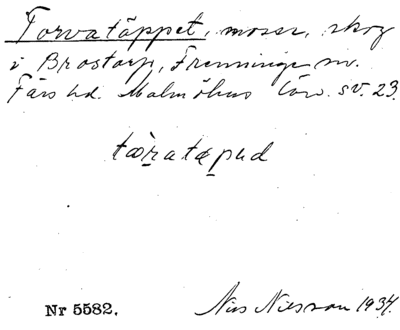 Torvatäppet, mosse, skog
i Brostorp, Frenninge sn.
Färs hd. Malmöhus län. sv. 23.
tæratæpud
Nr 5582. Nils Nilsson 1934.